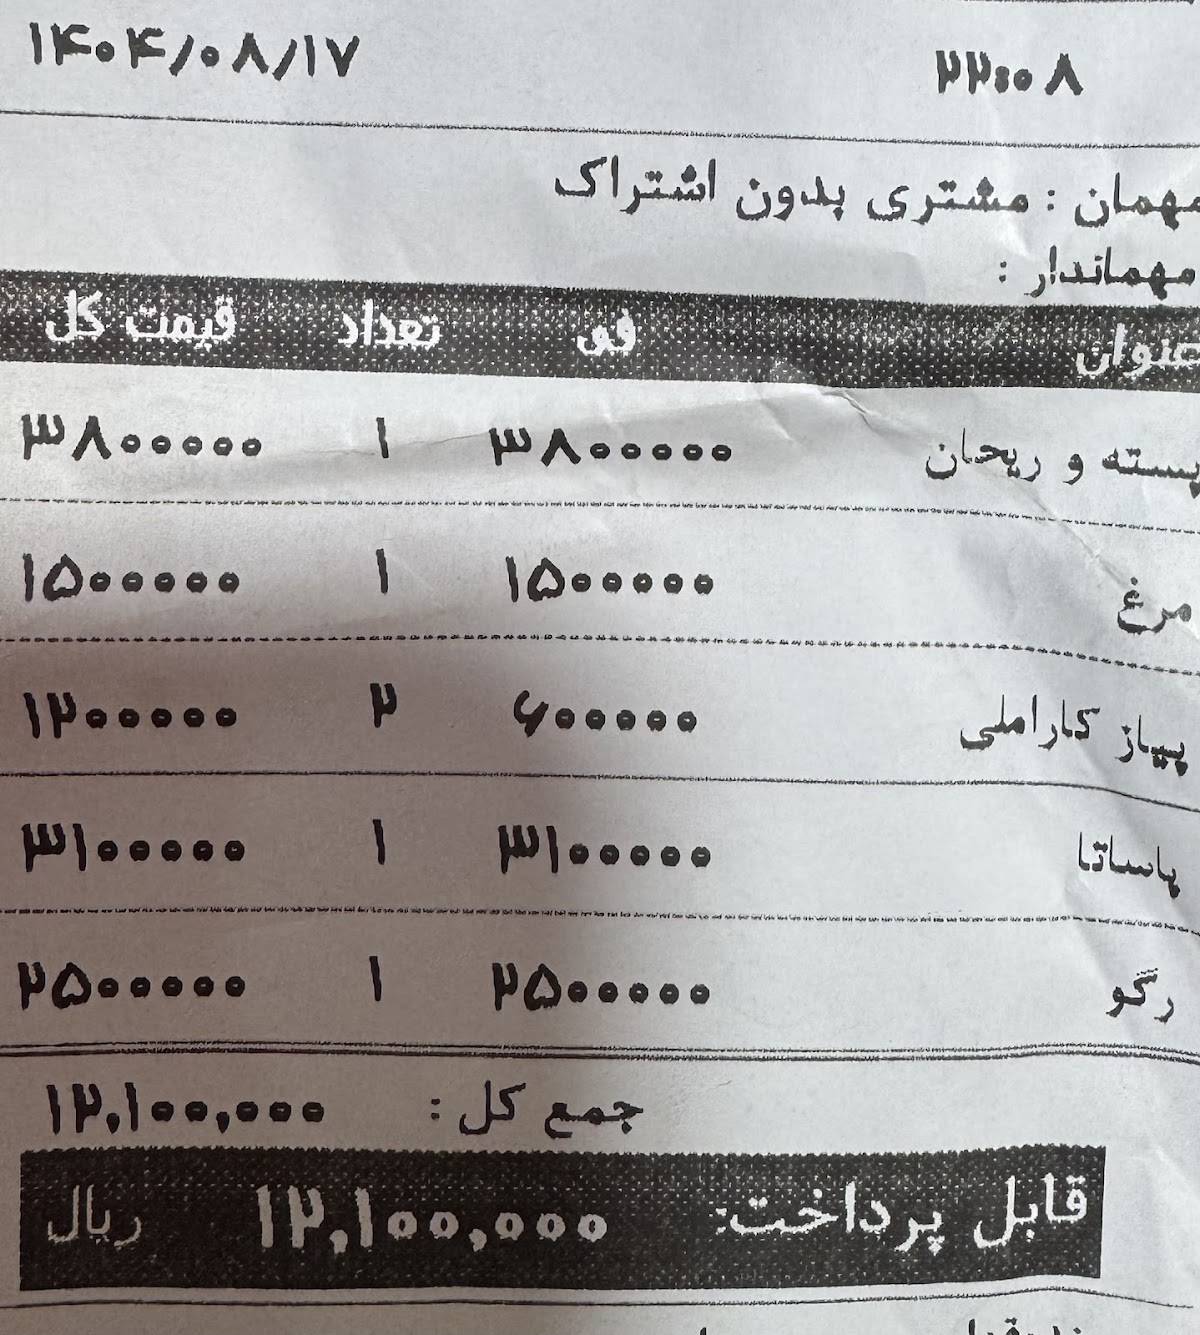 ۲۲:۰۸ ۱۴۰۴/۰۸/۱۷
مهمان : مشتری بدون اشتراک
مهماندار :
عنوان فی تعداد قیمت کل
پسته و ریحان ۳۸۰۰۰۰۰ ۱ ۳۸۰۰۰۰۰
مرغ ۱۵۰۰۰۰۰ ۱ ۱۵۰۰۰۰۰
پیاز کاراملی ۶۰۰۰۰۰ ۲ ۱۲۰۰۰۰۰
پاساتا ۳۱۰۰۰۰۰ ۱ ۳۱۰۰۰۰۰
رگو ۲۵۰۰۰۰۰ ۱ ۲۵۰۰۰۰۰
جمع کل : ۱۲,۱۰۰,۰۰۰
قابل پرداخت: ۱۲,۱۰۰,۰۰۰ ریال